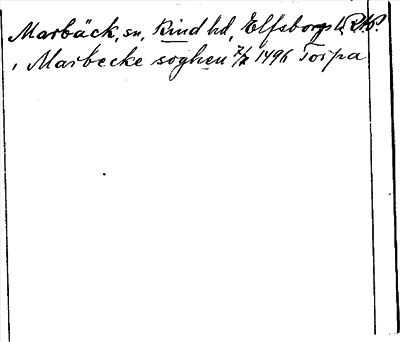 Marbäck, sn, Kind hd, Elfsborgs l.
i Marbecke soghen 7/2 1496 Torpa